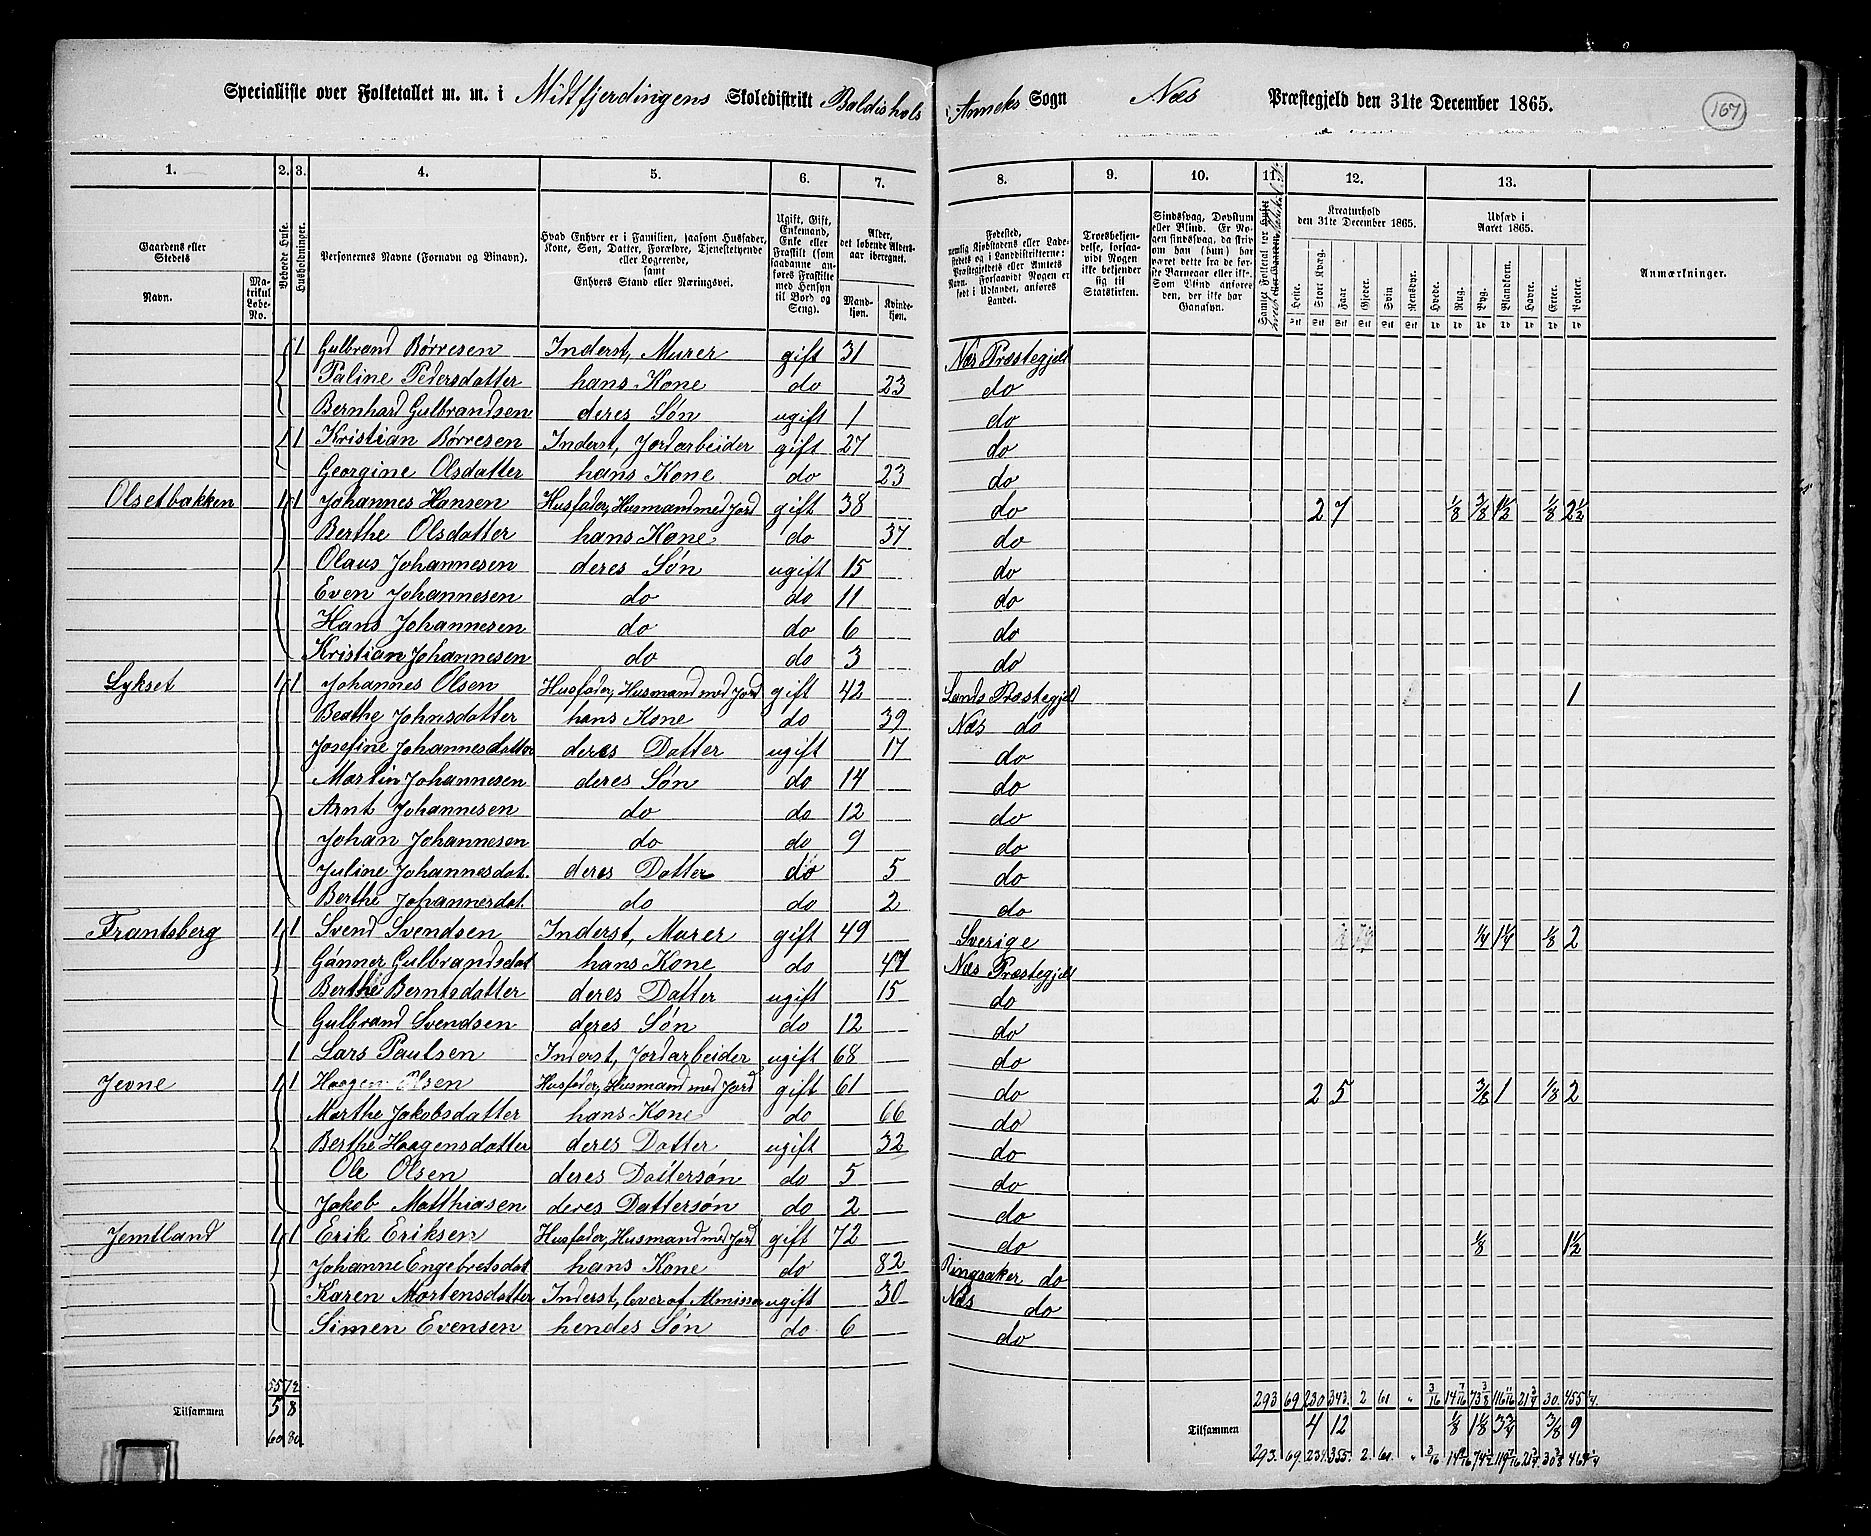 Specialliste over Folketallet m. m. i Midtfjerdingens Skoledistrikt Baldishols Annex Sogn Næs Præstegjeld den 31te December 1865.
167
1. 2. 3. 4. 5. 6. 7. 8. 9. 10. 11. 12. 13.
Gaardens eller Stedets
Navn. Matrikul Løbe-No.
Beboede Huse.
Husholdninger.
Personernes Navne (Fornavn og Binavn).
Hvad Enhver er i Familien, saasom Husfader, Kone, Søn, Datter, Forældre, Tjenestetyende eller Logerende, samt Enhvers Stand eller Næringsvei.
Ugift, Gift, Enkemand, Enke eller Fraskilt (som saadanne anføres Fraskilte med Hensyn til Bord og Seng).
Alder, det løbende Aldersaar iberegnet.
Mandkjøn. Kvindekjøn.
Fødested, nemlig Kjøbstadens eller Ladestedets og i Landdistrikterne: Præstegjeldets eller Amtets Navn. Forsaavidt Nogen er født i Udlandet, anføres Landet.
Troesbekjendelse, forsaavidt Nogen ikke bekjender sig til Statskirken.
Kreaturhold den 31te December 1865.
Heste. Stort Kvæg. Faar. Gjeder. Svin. Rensdyr.
Udsæd i Aaret 1865.
Hvede. Rug. Byg. Blandkorn. Havre. Erter. Poteter.
Anmærkninger.
1 1 Gulbrand Børresen Inderst, Murer gift 31 Næs Præstegjeld
Paline Pedersdatter hans Kone do 23 do
Bernhard Gulbrandsen deres Søn ugift 1 do
1 1 Kristian Børresen Inderst, Jordarbeider gift 27 do
Georgine Olsdatter hans Kone do 23 do
Olsetbakken 1 1 Johannes Hansen Husfader, Husmand med Jord gift 38 do 2 7 1/8 3/8 1 1/2 1/8 2 1/2
Berthe Olsdatter hans Kone do 37 do
Olaus Johannesen deres Søn ugift 15 do
Even Johannesen do do 11 do
Hans Johannesen do do 6 do
Kristian Johannesen do do 3 do
Lykset 1 1 Johannes Olsen Husfader, Husmand med Jord gift 42 Lands Præstegjeld 1
Beathe Johnsdatter hans Kone do 39 Næs do
Josefine Johannesdatter deres Datter ugift 17 do
Martin Johannesen deres Søn do 14 do
Arnt Johannesen do do 12 do
Johan Johannesen do do 9 do
Juline Johannesdat. deres Datter do 5 do
Berthe Johannesdat. do do 2 do
Frantsberg 1 1 Svend Svendsen Inderst, Murer gift 49 Sverige 1/4 1 1/4 1/8 2
Gunner Gulbrandsdat hans Kone do 47 Næs Præstegjeld
Berthe Berntsdatter deres Datter ugift 15 do
Gulbrand Svendsen deres Søn do 12 do
1 Lars Paulsen Inderst, Jordarbeider ugift 68 do
Jevne 1 1 Haagen Olsen Husfader, Husmand med Jord gift 61 do 2 5 3/8 1 1/8 2
Marthe Jakobsdatter hans Kone do 66 do
Berthe Haagensdatter deres Datter ugift 32 do
Ole Olsen deres Dattersøn do 5 do
Jakob Matthiasen deres Dattersøn do 2 do
Jemtland 1 1 Erik Eriksen Husfader, Husmand med Jord gift 72 do 1/8 1 1/2
Johanne Engebretsdat hans Kone do 82 Ringsaker do
Karen Mortensdatter Inderst, lever af Almisse ugift 30 Næs do
Simen Evensen hendes Søn do 6 do
55 72 293 69 230 343 2 61 " 3/16 14 7/16 73 3/8 116 21 3/4 30 455 1/4
Tilsammen 5 8 Tilsammen 4 12 1/8 1 1/8 3 3/4 3/8 9
60 80 293. 69. 234. 355. 2. 61. " 3/16 74 1/2 119 21 3/4 30 3/8 464 1/4